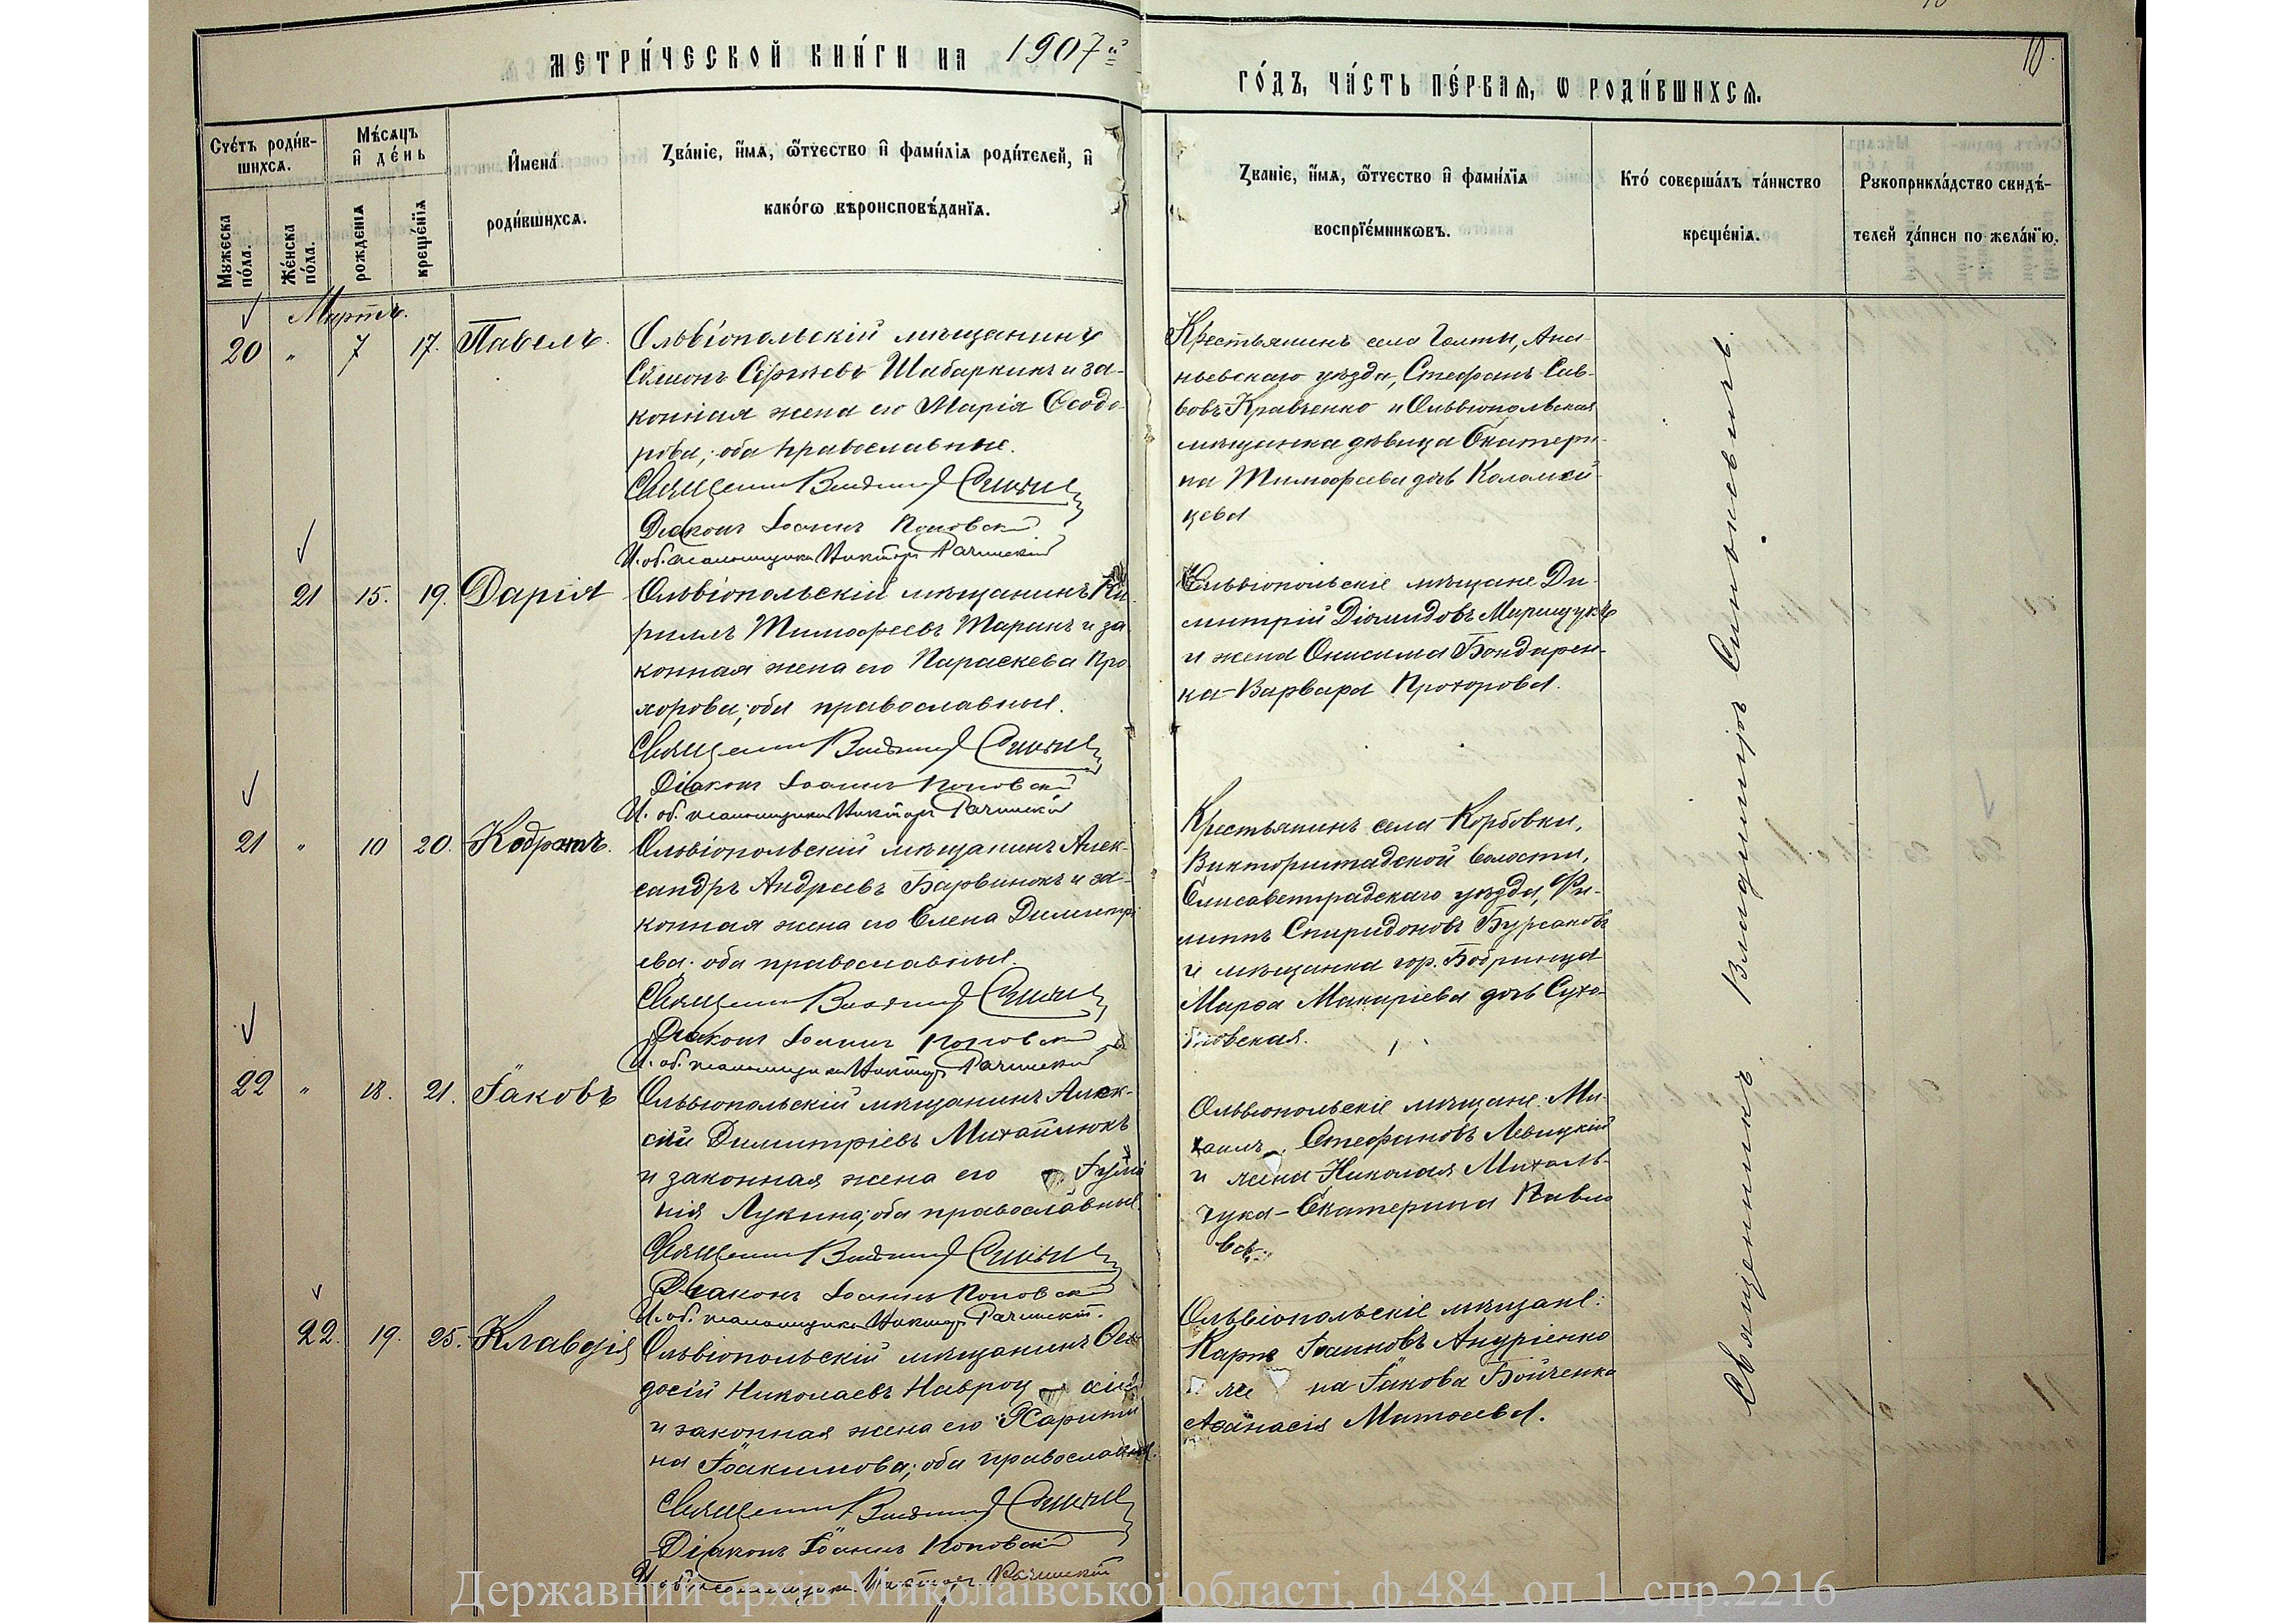 МЕТРИ́ЧЕСКОЙ КНИ́ГИ НА 1907й
ГО́ДЪ, ЧА́СТЬ ПЕ́РВАЯ, Ѡ РОДИ́ВШИХСѦ.
10.
Сче́тъ роди́в-
шихсѧ.
Мѣ́сѧцъ
и҆ де́нь
И҆мена́
роди́вшихсѧ.
Зва́нїе, и҆́мѧ, ѻ҆́тчество и҆ фами́лїѧ роди́телей, и҆
како́гѡ вѣроисповѣ́данїѧ.
Зва́нїе, и҆́мѧ, ѻ҆́тчество и҆ фами́лїѧ
воспрїе́мникѡвъ.
Кто̀ соверша́лъ та́инство
креще́нїѧ.
Рꙋкоприкла́дство свидѣ́-
телей за́писи по жела́нїю.
Мꙋжеска
по́ла.
Же́нска
по́ла.
рожденїѧ
креще́нїѧ
Мартъ.
20 " 7 17. Павелъ.
Ольвіопольскій мѣщанинъ
Симеонъ Сергіевъ Шабаркинъ и за-
конная жена его Марія Ѳеодо-
рова; оба православные.
Священникъ Владимір Синькевич
Діаконъ Іоаннъ Поповскій
И. об. псаломщика Виктор Рачинскій
Крестьянинъ села Голты, Ана-
ньевскаго уѣзда, Стефанъ Сав-
вовъ Кравченко и Ольвіопольская
мѣщанка дѣвица Екатери-
на Тимофеева дочь Коломей-
цева
21 15. 19. Дарія
Ольвіопольскій мѣщанинъ Ки-
риллъ Тимофеевъ Таранъ и за-
конная жена его Параскева Про-
хорова; оба православные.
Священникъ Владимір Синькевич
Діаконъ Іоаннъ Поповскій
И. об. псаломщика Виктор Рачинскій
Ольвіопольскіе мѣщане Ди-
митрій Діомидовъ Марищукъ
и жена Онисима Бондарен-
ка - Варвара Прохорова.
21 " 10 20. Кодратъ.
Ольвіопольскій мѣщанинъ Алек-
сандръ Андреевъ Барвинокъ и за-
конная жена его Елена Димитрі-
ева; оба православные.
Священникъ Владимір Синькевич
Діаконъ Іоаннъ Поповскій
И. об. псаломщика Виктор Рачинскій
Крестьянинъ села Корбовки,
Викторштадской волости,
Елисаветградскаго уѣзда, Фи-
липпъ Спиридоновъ Бурсаковъ
и мѣщанка гор. Бобринца
Марѳа Макаріева дочь Сухо-
новская.
22 " 18. 21. Іаковъ
Ольвіопольскій мѣщанинъ Алек-
сій Димитріевъ Михайлюкъ
и законная жена его Іулiа-
нія Лукина; оба православные.
Священникъ Владимір Синькевич
Діаконъ Іоаннъ Поповскій
И. об. псаломщика Виктор Рачинскій.
Ольвіопольскіе мѣщане: Ми-
хаилъ Стефановъ Левицкій
и жена Николая Михаль-
чука - Екатерина Павло-
ва.
22. 19. 25. Клавдія
Ольвіопольскій мѣщанинъ Ѳео-
досій Николаевъ Навроц кій
и законная жена его Харити-
на Іоакимова; оба православные.
Священникъ Владимір Синькевич
Діаконъ Іоаннъ Поповскій
И. об. псаломщика Виктор Рачинскій
Ольвіопольскіе мѣщане:
Карпъ Іоанновъ Андріенко
же на Іакова Бойченка
Аѳанасія Матѳеева.
Священникъ Владиміръ Синькевичъ.
Державний архів Миколаївської області, ф.484, оп 1, спр.2216